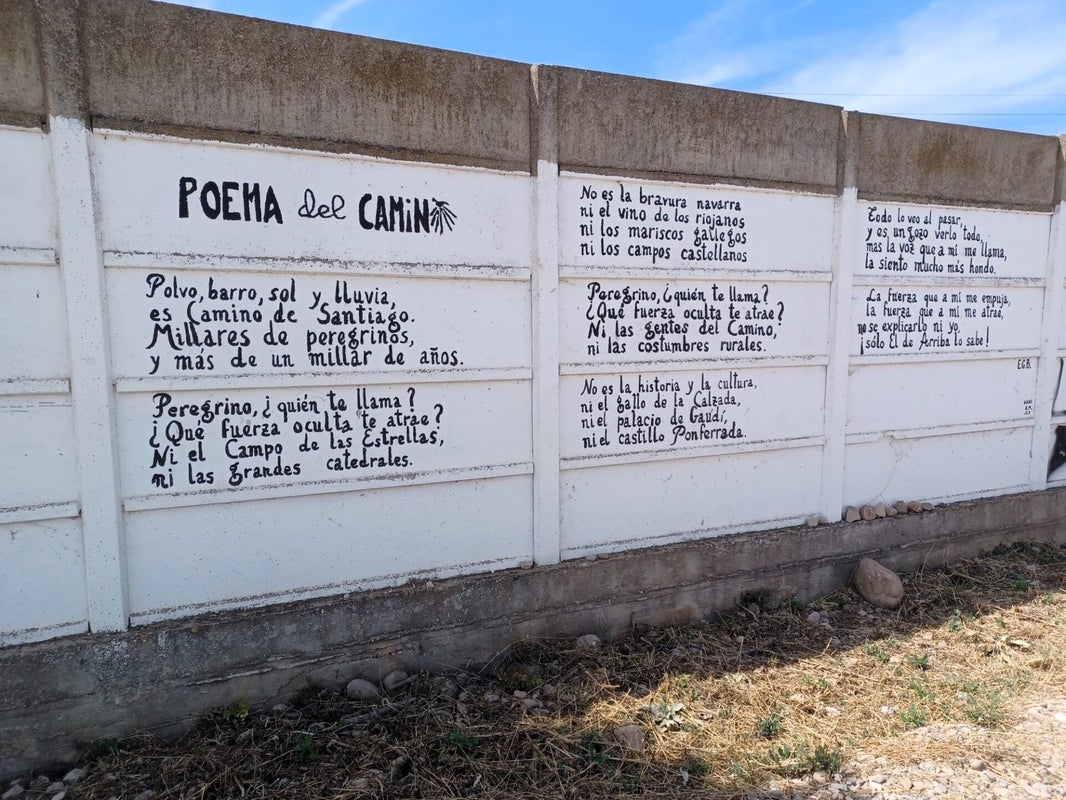 POEMA del CAMINO
Polvo, barro, sol y lluvia,
es Camino de Santiago.
Millares de peregrinos,
y más de un millar de años.
Peregrino, ¿quién te llama?
¿Qué fuerza oculta te atrae?
Ni el Campo de las Estrellas,
ni las grandes catedrales.
No es la bravura navarra
ni el vino de los riojanos
ni los mariscos gallegos
ni los campos castellanos
Peregrino, ¿quién te llama?
¿Qué fuerza oculta te atrae?
Ni las gentes del Camino,
ni las costumbres rurales.
No es la historia y la cultura,
ni el gallo de la Calzada,
ni el palacio de Gaudí,
ni el castillo Ponferrada.
Todo lo veo al pasar,
y es un gozo verlo todo,
mas la voz que a mí me llama,
la siento mucho más hondo.
La fuerza que a mí me empuja,
la fuerza que a mí me atrae,
no se explicarlo ni yo,
¡sólo El de Arriba lo sabe!
E.G.B.